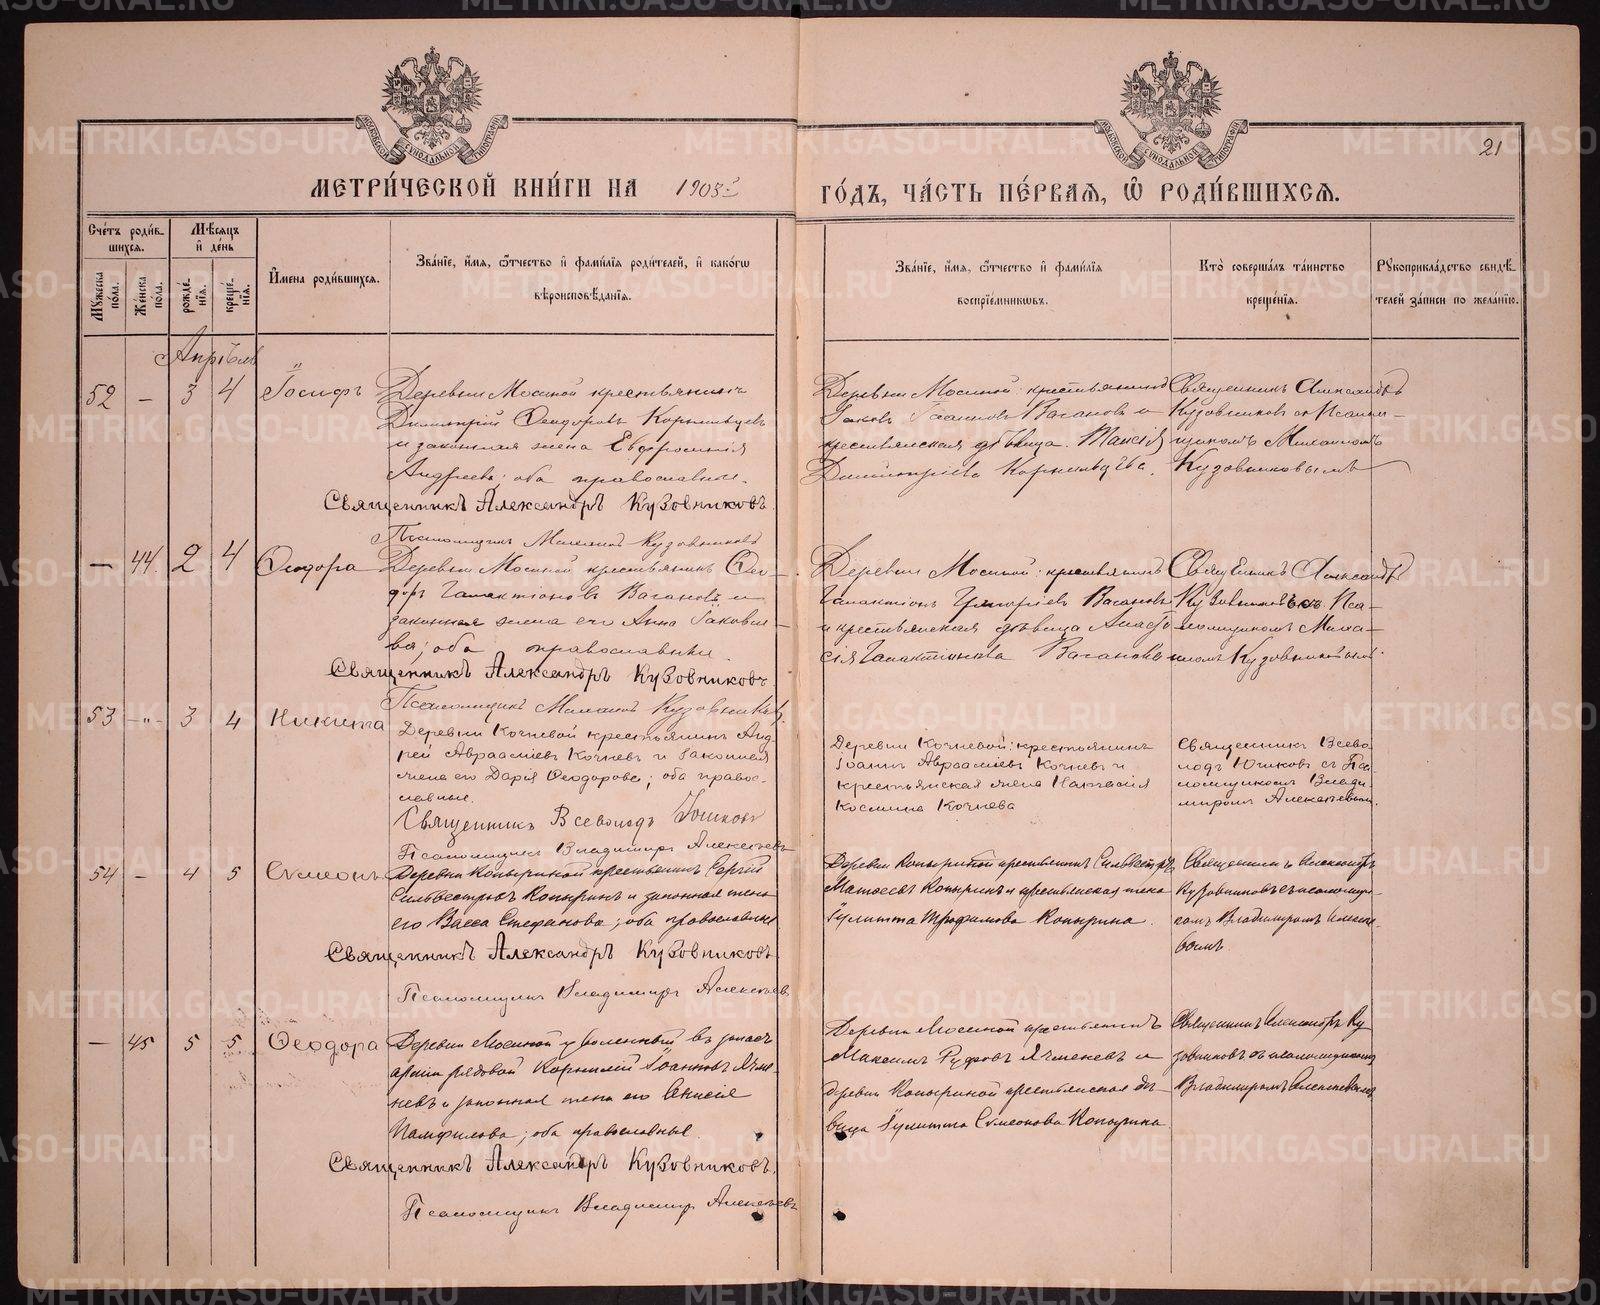 МЕТРИ́ЧЕСКОЙ КНИ́ГИ НА 1905 г ГО́ДЪ, ЧА́СТЬ ПЕ́РВАЯ, Ѿ РОДИ́ВШИХСЯ.
21
Сче́тъ роди́вшихся.
Му́жеска пола.
Же́нска пола.
Мѣ́сяцъ и де́нь
рожде́нїя.
креще́нїя.
И́мена роди́вшихся.
Зва́нїе, и́мя, ѻ́тчество и фами́лїя роди́телей, и како́гѡ
вѣроисповѣ́данїя.
Зва́нїе, и́мя, ѻ́тчество и фами́лїя
воспрїе́мникѡвъ.
Кто̀ соверша́лъ та́инство
креще́нїя.
Рꙋкоприкла́дство свидѣ́-
телей за́писи по жела́нїю.
Апрѣль
52 — 3 4 Іосифъ
Деревни Мосиной крестьянинъ
Димитрій Ѳеодоровъ
и законная жена Евфросинія
Андреева; оба православные.
Священникъ Александръ Кузовниковъ.
Псаломщикъ Михаилъ Кузовниковъ
Деревни Мосиной крестьянинъ
Іаковъ Ваганов и
крестьянская дѣвица Таисія
Димитріева
Священникъ Александръ
Кузовниковъ съ Псалом-
щикомъ Михаиломъ
Кузовниковымъ
— 44. 2 4 Ѳеодора
Деревни Мосиной крестьянинъ Ѳео-
доръ Галактіоновъ Вагановъ и
законная жена его Анна Іаковле-
ва; оба православные.
Священникъ Александръ Кузовниковъ.
Псаломщикъ Михаилъ Кузовниковъ.
Деревни Мосиной крестьянинъ
Галактіонъ Григоріевъ Вагановъ
и крестьянская дѣвица Анаста-
сія Галактіонова Ваганова
Священникъ Александръ
Кузовниковъ съ Пса-
ломщикомъ Миха-
иломъ Кузовниковымъ.
53 —"— 3 4 Никита
Деревни Кочневой крестьянинъ Анд-
рей Авраамiевъ Кочневъ и законная
жена его Дарія Ѳеодорова; оба право-
славные.
Священникъ Всеволодъ Юшковъ
Псаломщикъ Владимiръ Алексѣевъ
Деревни Кочневой: крестьянинъ
Іоаннъ Авраамiевъ Кочневъ и
крестьянская жена
Космина Кочнева
Священникъ Всево-
лодъ Юшковъ съ Пса-
ломщикомъ Влади-
мiромъ Алексѣевымъ.
54 — 4 5 Сѵмеонъ
Деревни Копыриной крестьянинъ Сергій
Сильвестровъ Копыринъ и законная жена
его Васса Стефанова; оба православные
Священникъ Александръ Кузовниковъ.
Псаломщикъ Владимiръ Алексѣевъ
Деревни Копыриной крестьянинъ Сильвестръ
Матѳеевъ Копыринъ и крестьянская жена
Іулитта Трофимова Копырина.
Священникъ Александръ
Кузовниковъ съ псаломщи-
комъ Владимiромъ Алексѣе-
вымъ.
— 45 5 5 Ѳеодора
Деревни Мосиной уволенный въ запасъ
арміи рядовой Корнилій Іоанновъ Ячме-
невъ и законная жена его Анисія
Памфилова; оба православные.
Священникъ Александръ Кузовниковъ.
Псаломщикъ Владимiръ Алексѣевъ
Деревни Мосиной крестьянинъ
Максимъ Руфовъ Ячменевъ и
деревни Копыриной крестьянская дѣ-
вица Іулитта Сѵмеонова Копырина
Священникъ Александръ Ку-
зовниковъ съ псаломщикомъ
Владимiромъ Алексѣевымъ
METRIKI.GASO-URAL.RU